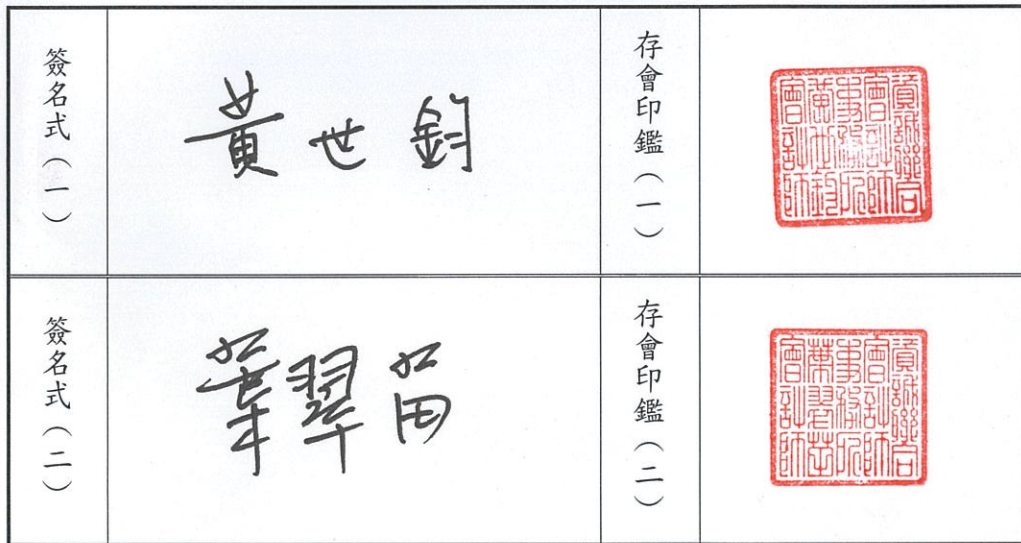 簽名式（一）
黃世鈞
存會印鑑（一）
資誠聯合會計師事務所黃世鈞會計師
簽名式（二）
葉翠苗
存會印鑑（二）
資誠聯合會計師事務所葉翠苗會計師